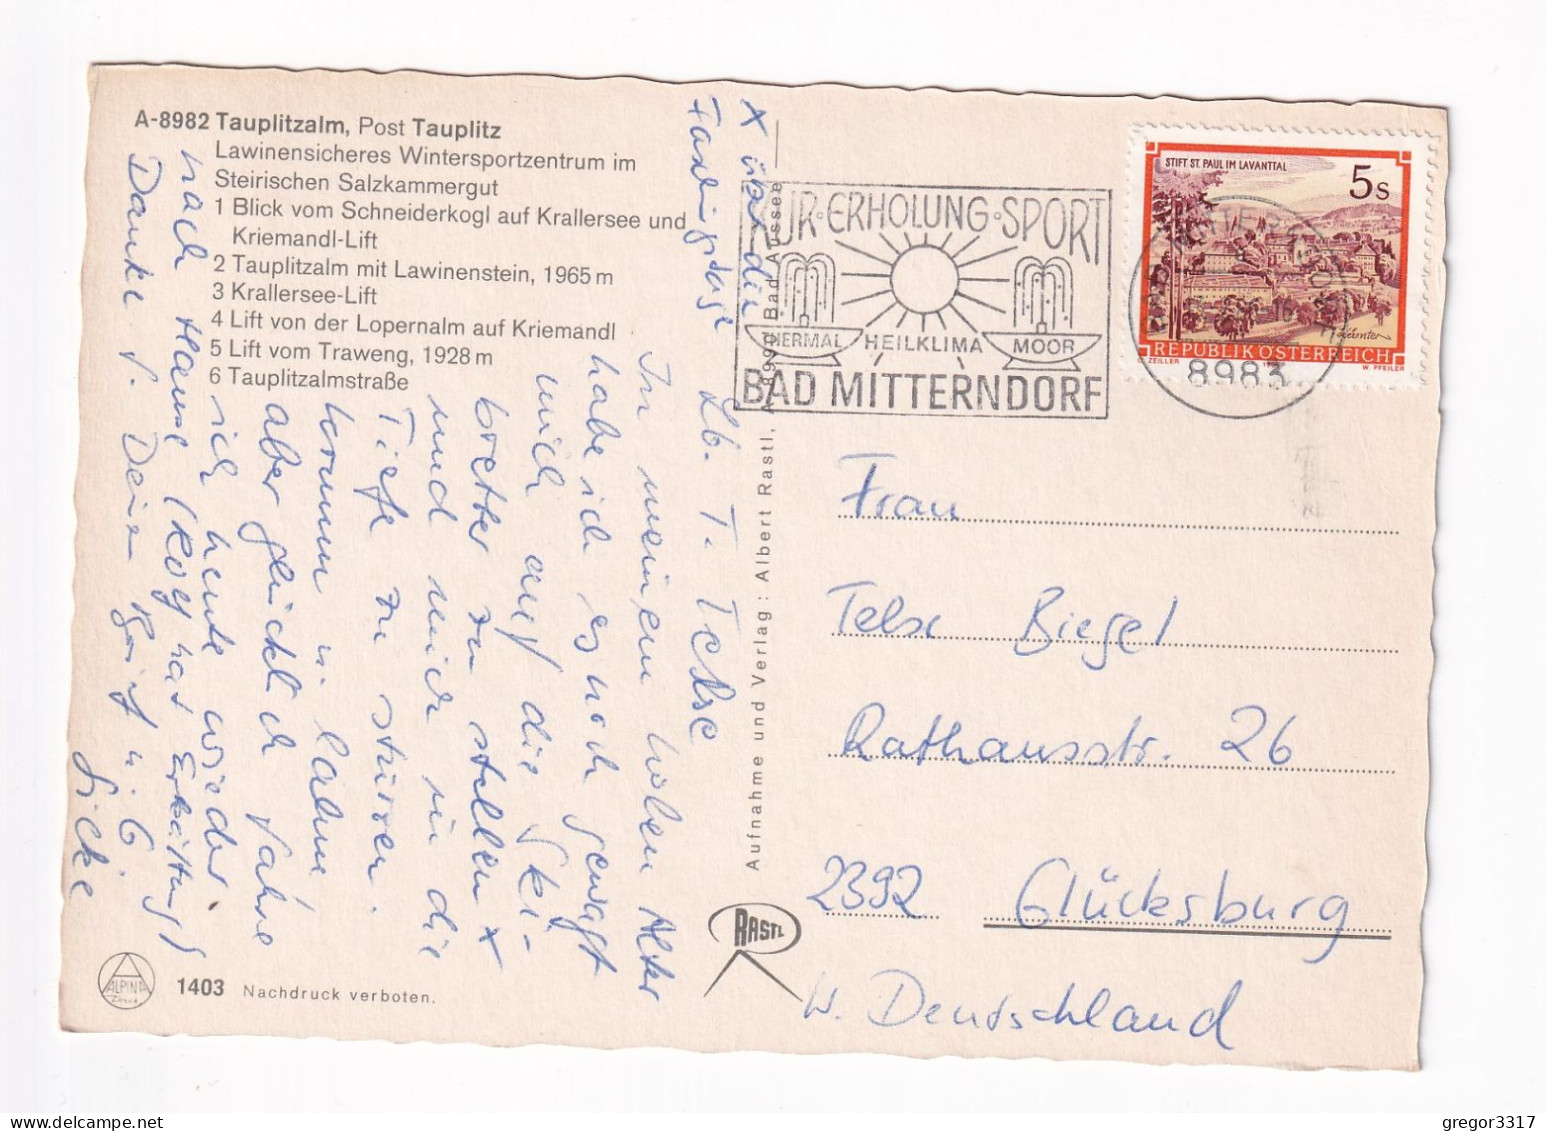 A-8982 Tauplitzalm, Post Tauplitz
Lawinensicheres Wintersportzentrum im
Steirischen Salzkammergut
1 Blick vom Schneiderkogl auf Krallersee und
Kriemandl-Lift
2 Tauplitzalm mit Lawinenstein, 1965 m
3 Krallersee-Lift
4 Lift von der Lopernalm auf Kriemandl
5 Lift vom Traweng, 1928 m
6 Tauplitzalmstraße
x über die
Faschingstage
Lb. T. Telse
In meinem hohen Alter
habe ich es noch gewagt
mich auf die Ski-
bretter zu stellen x
und mich in die
Tiefe zu stürzen.
krumm u. lahm
aber glücklich fahre
ich heute wieder
nach Hause (Rolf hat Erkältung)
Danke f. Deinen Brief u. G
Silke
ALPINA
Druck
1403 Nachdruck verboten.
Aufnahme und Verlag: Albert Rastl, A-8990 Bad Aussee
RASTL
KUR·ERHOLUNG·SPORT
THERMAL HEILKLIMA MOOR
BAD MITTERNDORF
8983
STIFT ST. PAUL IM LAVANTTAL
5 S
Kärnten
REPUBLIK ÖSTERREICH
O. ZEILLER W. PFEILER
Frau
Telse Biegel
Rathausstr. 26
2392 Glücksburg
W. Deutschland
gregor3317